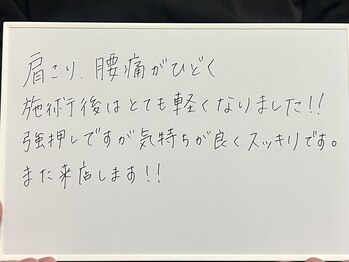 肩こり、腰痛がひどく
施術後はとても軽くなりました!!
強押しですが気持ちが良くスッキリです。
また来店します!!